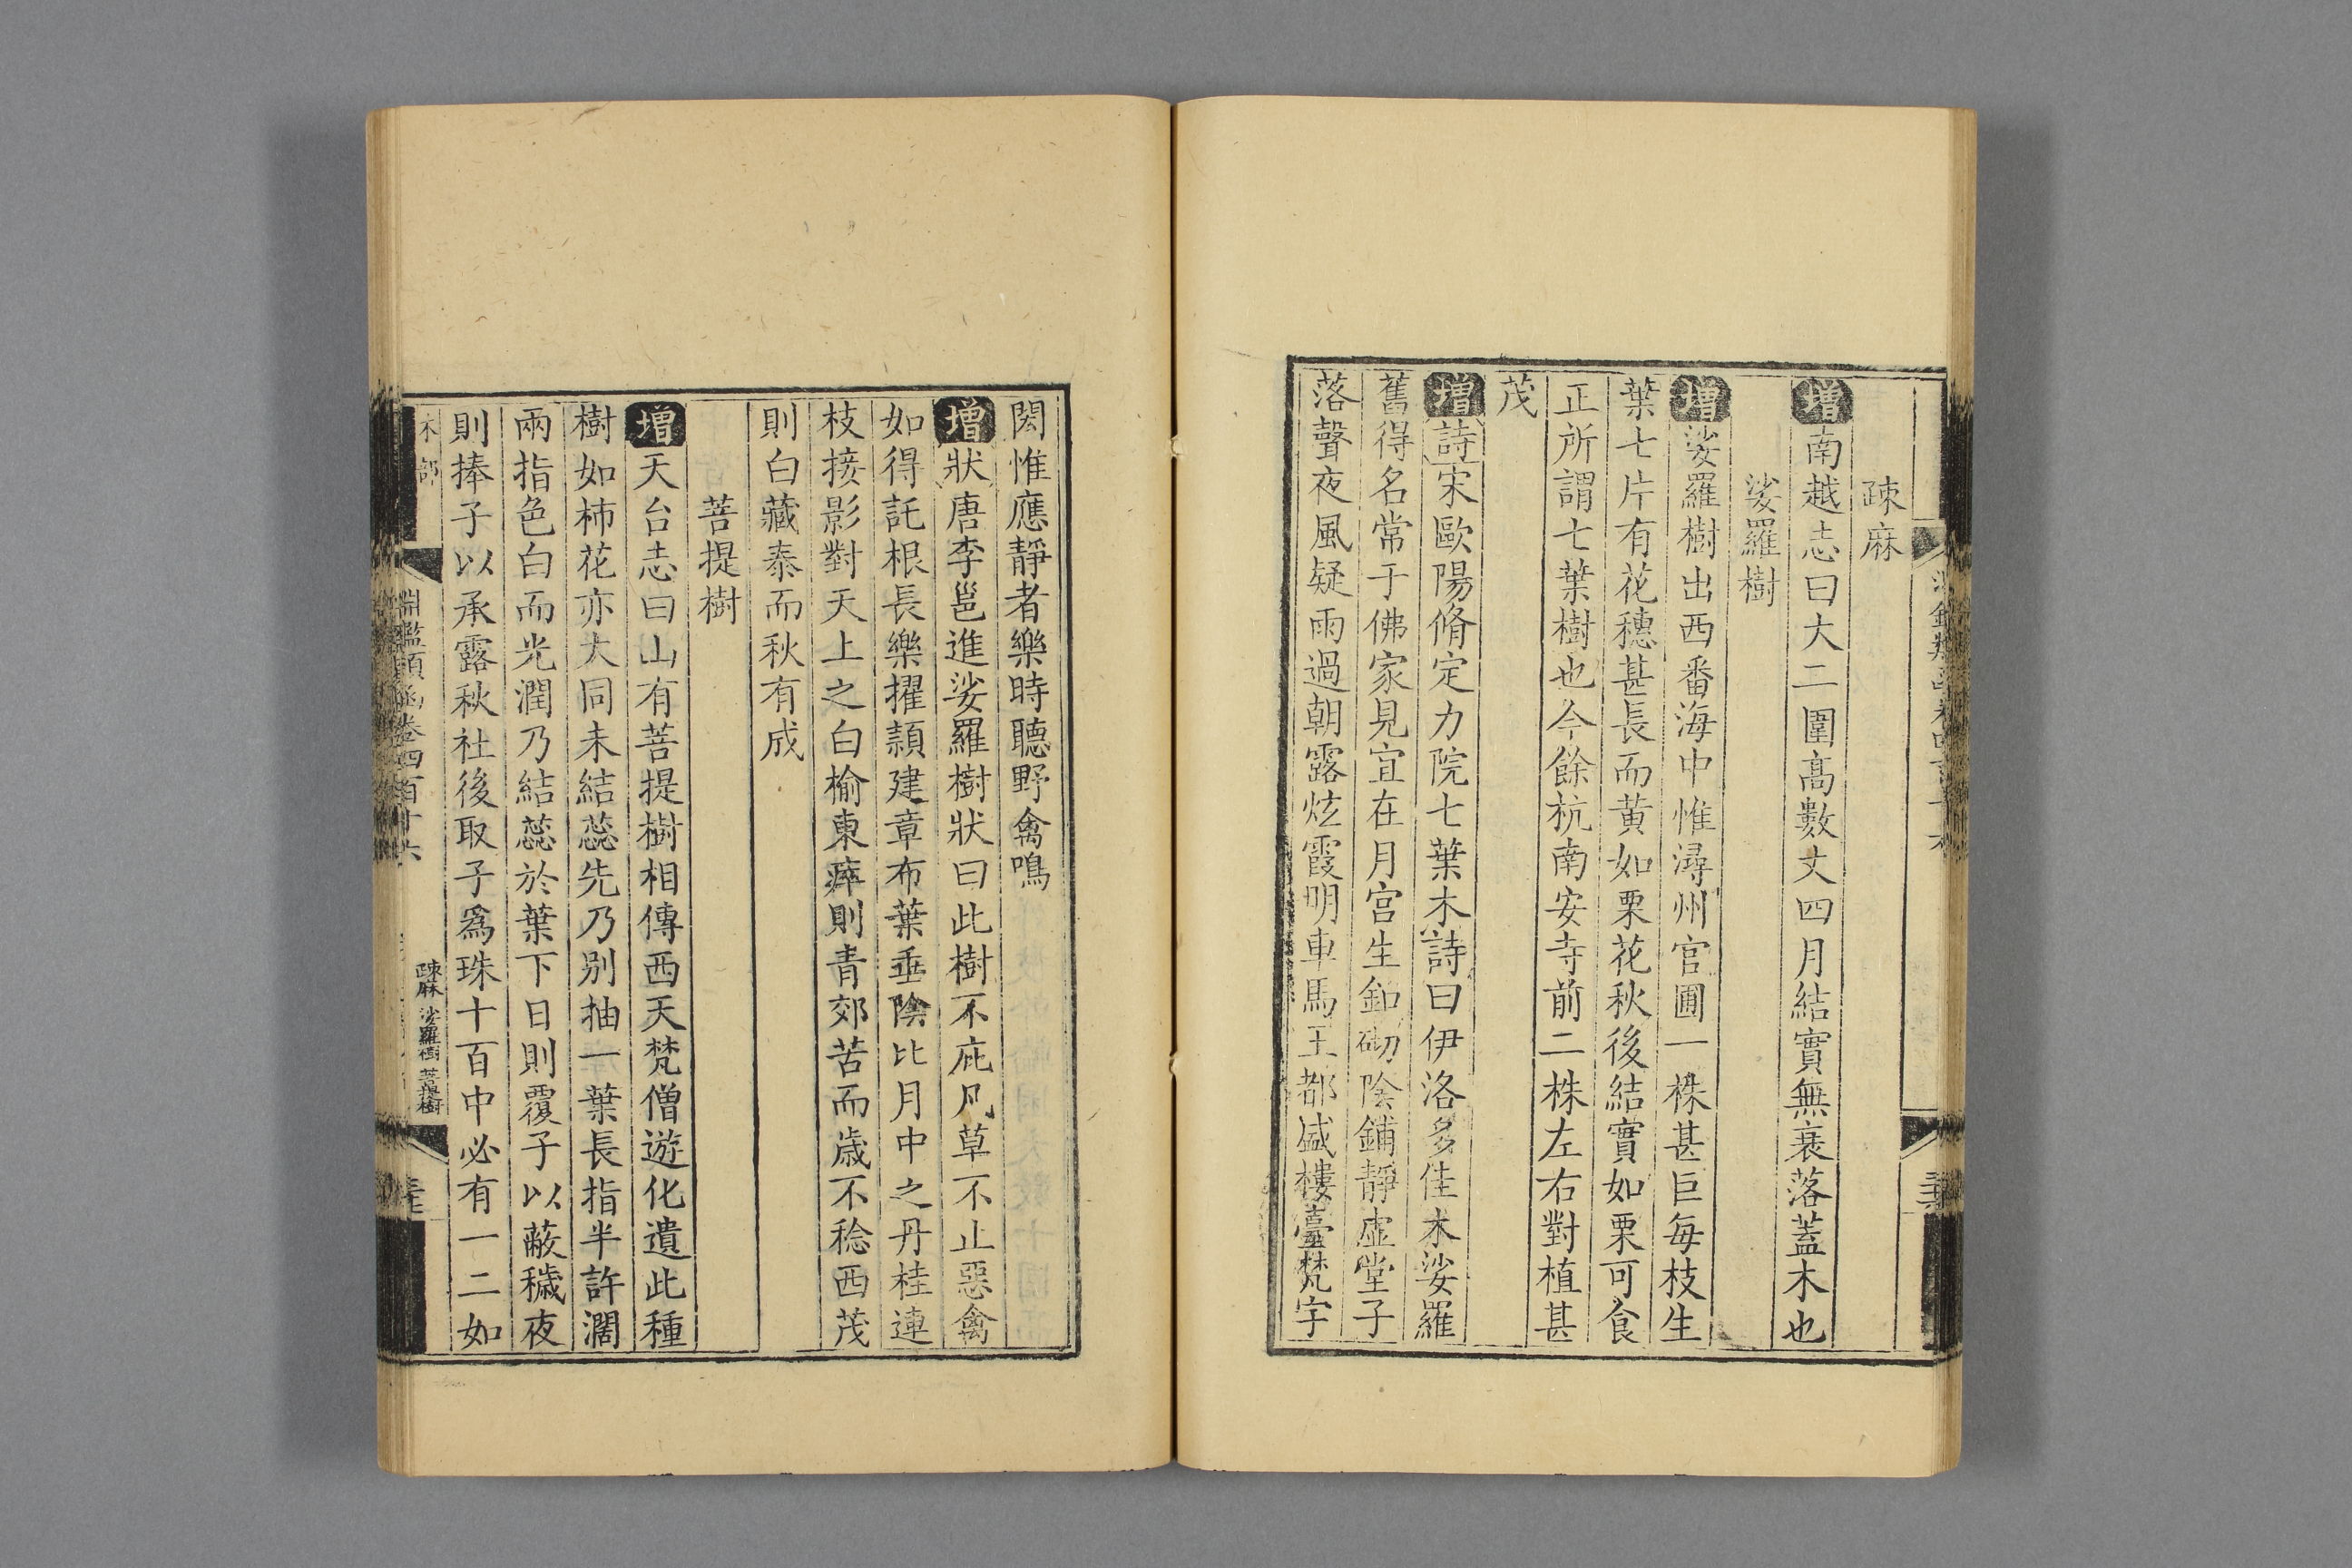 疎麻
增南越志曰大二圍髙數丈四月結實無衰落蓋木也
娑羅樹
增娑羅樹出西番海中惟潯州官圃一株甚巨每枝生
葉七片有花穗甚長而黄如栗花秋後結實如栗可食
正所謂七葉樹也今餘杭南安寺前二株左右對植甚
茂
增詩宋歐陽脩定力院七葉木詩曰伊洛多佳木娑羅
舊得名常于佛家見宜在月宫生釦砌陰鋪靜虛堂子
落聲夜風疑雨過朝露炫霞明車馬王都盛樓臺梵宇
閎惟應靜者樂時聽野禽鳴
增狀唐李邕進娑羅樹狀曰此樹不庇凡草不止惡禽
如得託根長樂擢穎建章布葉垂陰比月中之丹桂連
枝接影對天上之白榆東瘁則青郊苦而歲不稔西茂
則白藏泰而秋有成
菩提樹
增天台志曰山有菩提樹相傳西天梵僧遊化遺此種
樹如柿花亦大同未結蕊先乃别抽一葉長指半許濶
兩指色白而光潤乃結蕊於葉下日則覆子以蔽穢夜
則捧子以承露秋社後取子爲珠十百中必有一二如
木部
淵鑑類函卷四百十六
疎麻 娑羅樹 菩提樹